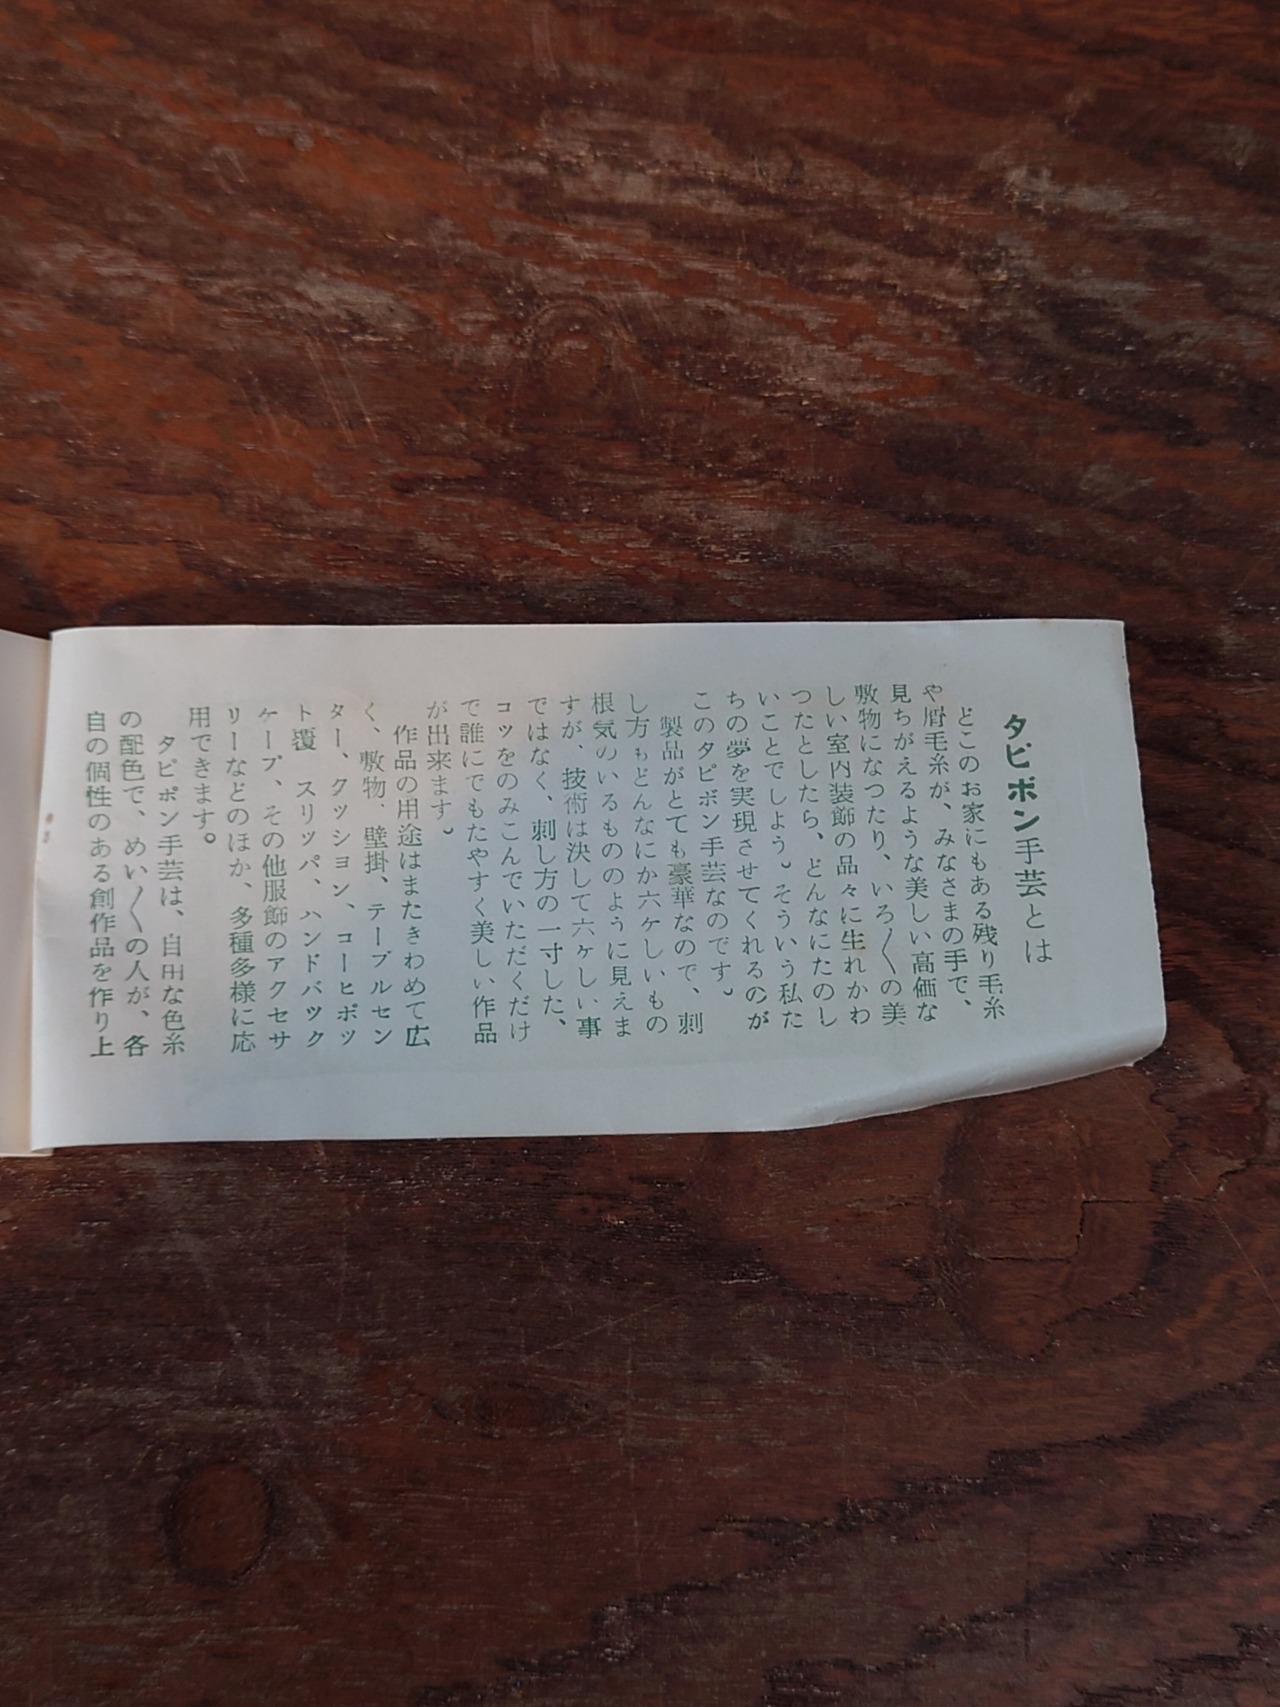 タピポン手芸とは
どこのお家にもある残り毛糸
や屑毛糸が、みなさまの手で、
見ちがえるような美しい高価な
敷物になつたり、いろ〱の美
しい室内装飾の品々に生れかわ
つたとしたら、どんなにたのし
いことでしよう。そういう私た
ちの夢を実現させてくれるのが
このタピポン手芸なのです。
製品がとても豪華なので、刺
し方もどんなにか六ケしいもの
根気のいるもののように見えま
すが、技術は決して六ケしい事
ではなく、刺し方の一寸した、
コッをのみこんでいただくだけ
で誰にでもたやすく美しい作品
が出来ます。
作品の用途はまたきわめて広
く、敷物、壁掛、テーブルセン
ター、クッション、コーヒポッ
ト覆 スリッパ、ハンドバック
ケープ、その他服飾のアクセサ
リーなどのほか、多種多様に応
用できます。
タピポン手芸は、自由な色糸
の配色で、めい〱の人が、各
自の個性のある創作品を作り上